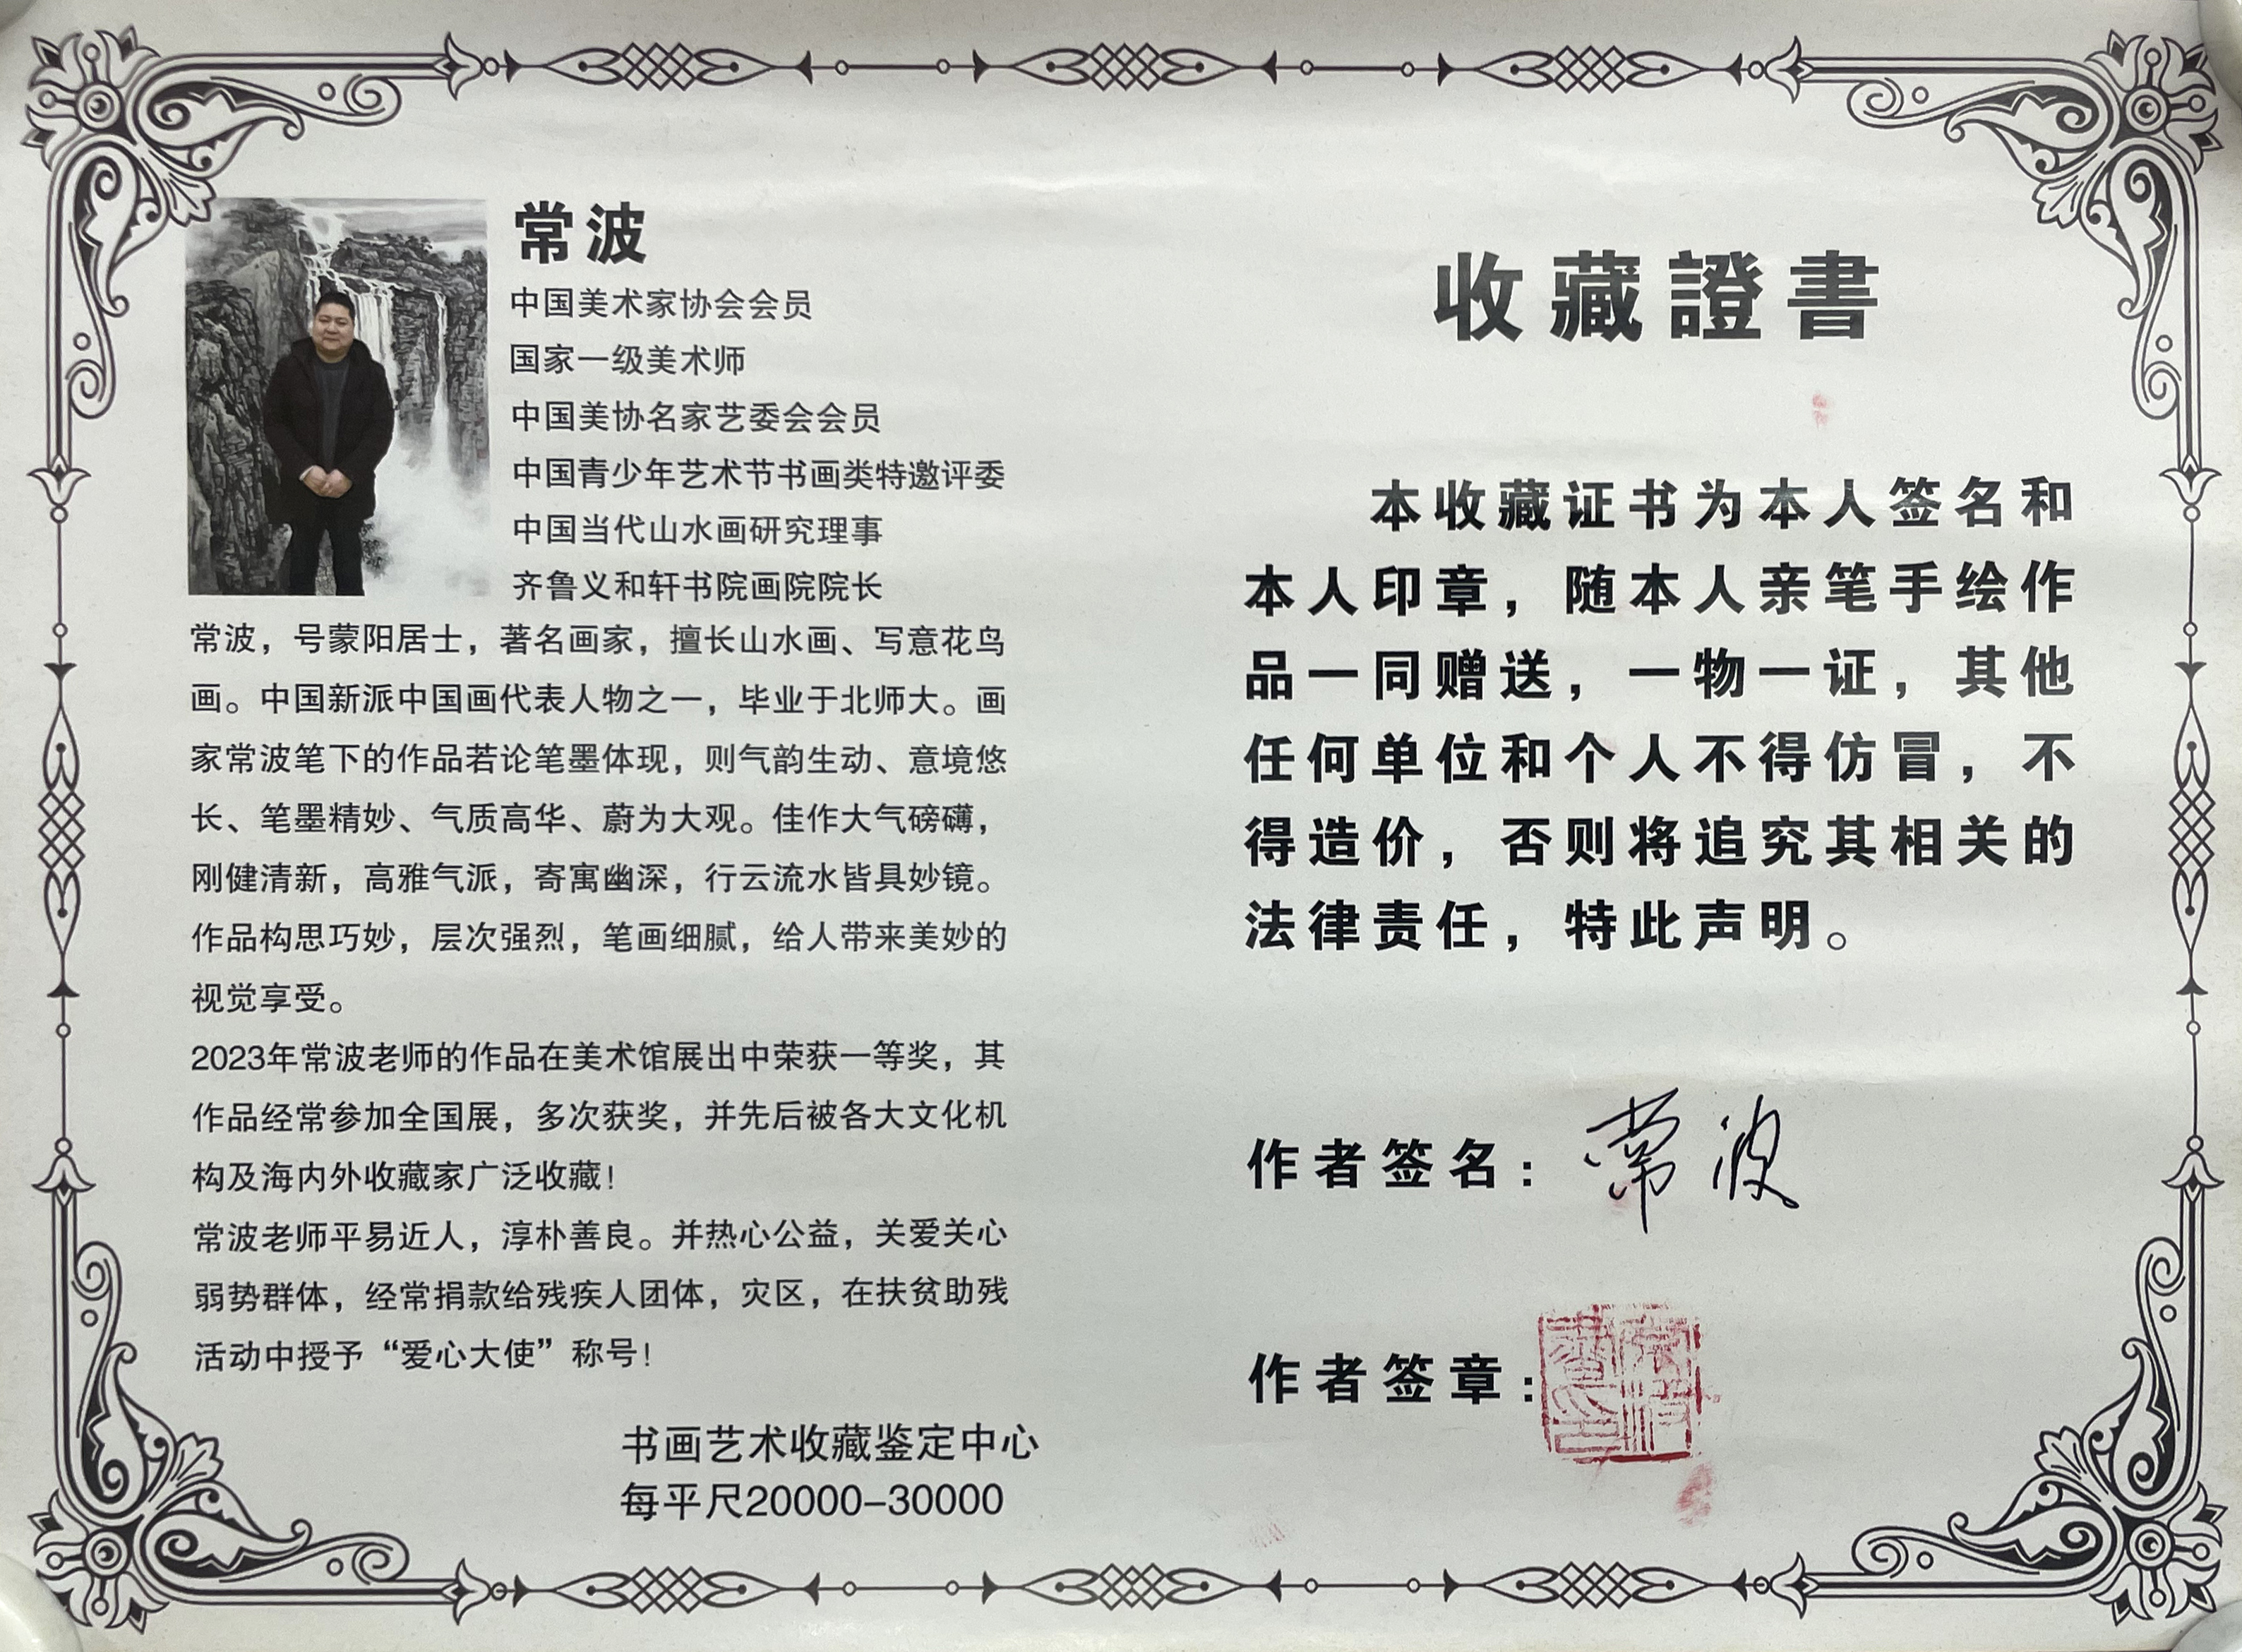 常波
中国美术家协会会员
国家一级美术师
中国美协名家艺委会会员
中国青少年艺术节书画类特邀评委
中国当代山水画研究理事
齐鲁义和轩书院画院院长
常波，号蒙阳居士，著名画家，擅长山水画、写意花鸟
画。中国新派中国画代表人物之一，毕业于北师大。画
家常波笔下的作品若论笔墨体现，则气韵生动、意境悠
长、笔墨精妙、气质高华、蔚为大观。佳作大气磅礴，
刚健清新，高雅气派，寄寓幽深，行云流水皆具妙镜。
作品构思巧妙，层次强烈，笔画细腻，给人带来美妙的
视觉享受。
2023年常波老师的作品在美术馆展出中荣获一等奖，其
作品经常参加全国展，多次获奖，并先后被各大文化机
构及海内外收藏家广泛收藏！
常波老师平易近人，淳朴善良。并热心公益，关爱关心
弱势群体，经常捐款给残疾人团体，灾区，在扶贫助残
活动中授予“爱心大使”称号！
书画艺术收藏鉴定中心
每平尺20000-30000
收藏證書
本收藏证书为本人签名和
本人印章，随本人亲笔手绘作
品一同赠送，一物一证，其他
任何单位和个人不得仿冒，不
得造价，否则将追究其相关的
法律责任，特此声明。
作者签名：常波
作者签章：